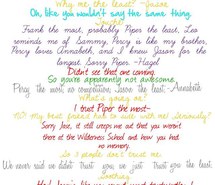 Why me the least? -Jason
Oh, like you wouldn't say the same thing.
Frank the most, probably Piper the least, Leo
reminds me of Sammy, Percy is like my brother,
Percy loves Annabeth, and I knew Jason for the
longest. Sorry Piper. -Hazel
Didn't see that one coming.
So you're apparently not awesome,
Percy the most, no competition. Jason the least. -Annabeth
What's going on?
I trust Piper the most-
NO! My best friend has to side with me! Seriously?
Sorry Jase, it still creeps me out that you weren't
there at the Wilderness School and how you
had no idea.
So 3 people don't trust me
We never said we didn't trust you we just trust you the least.